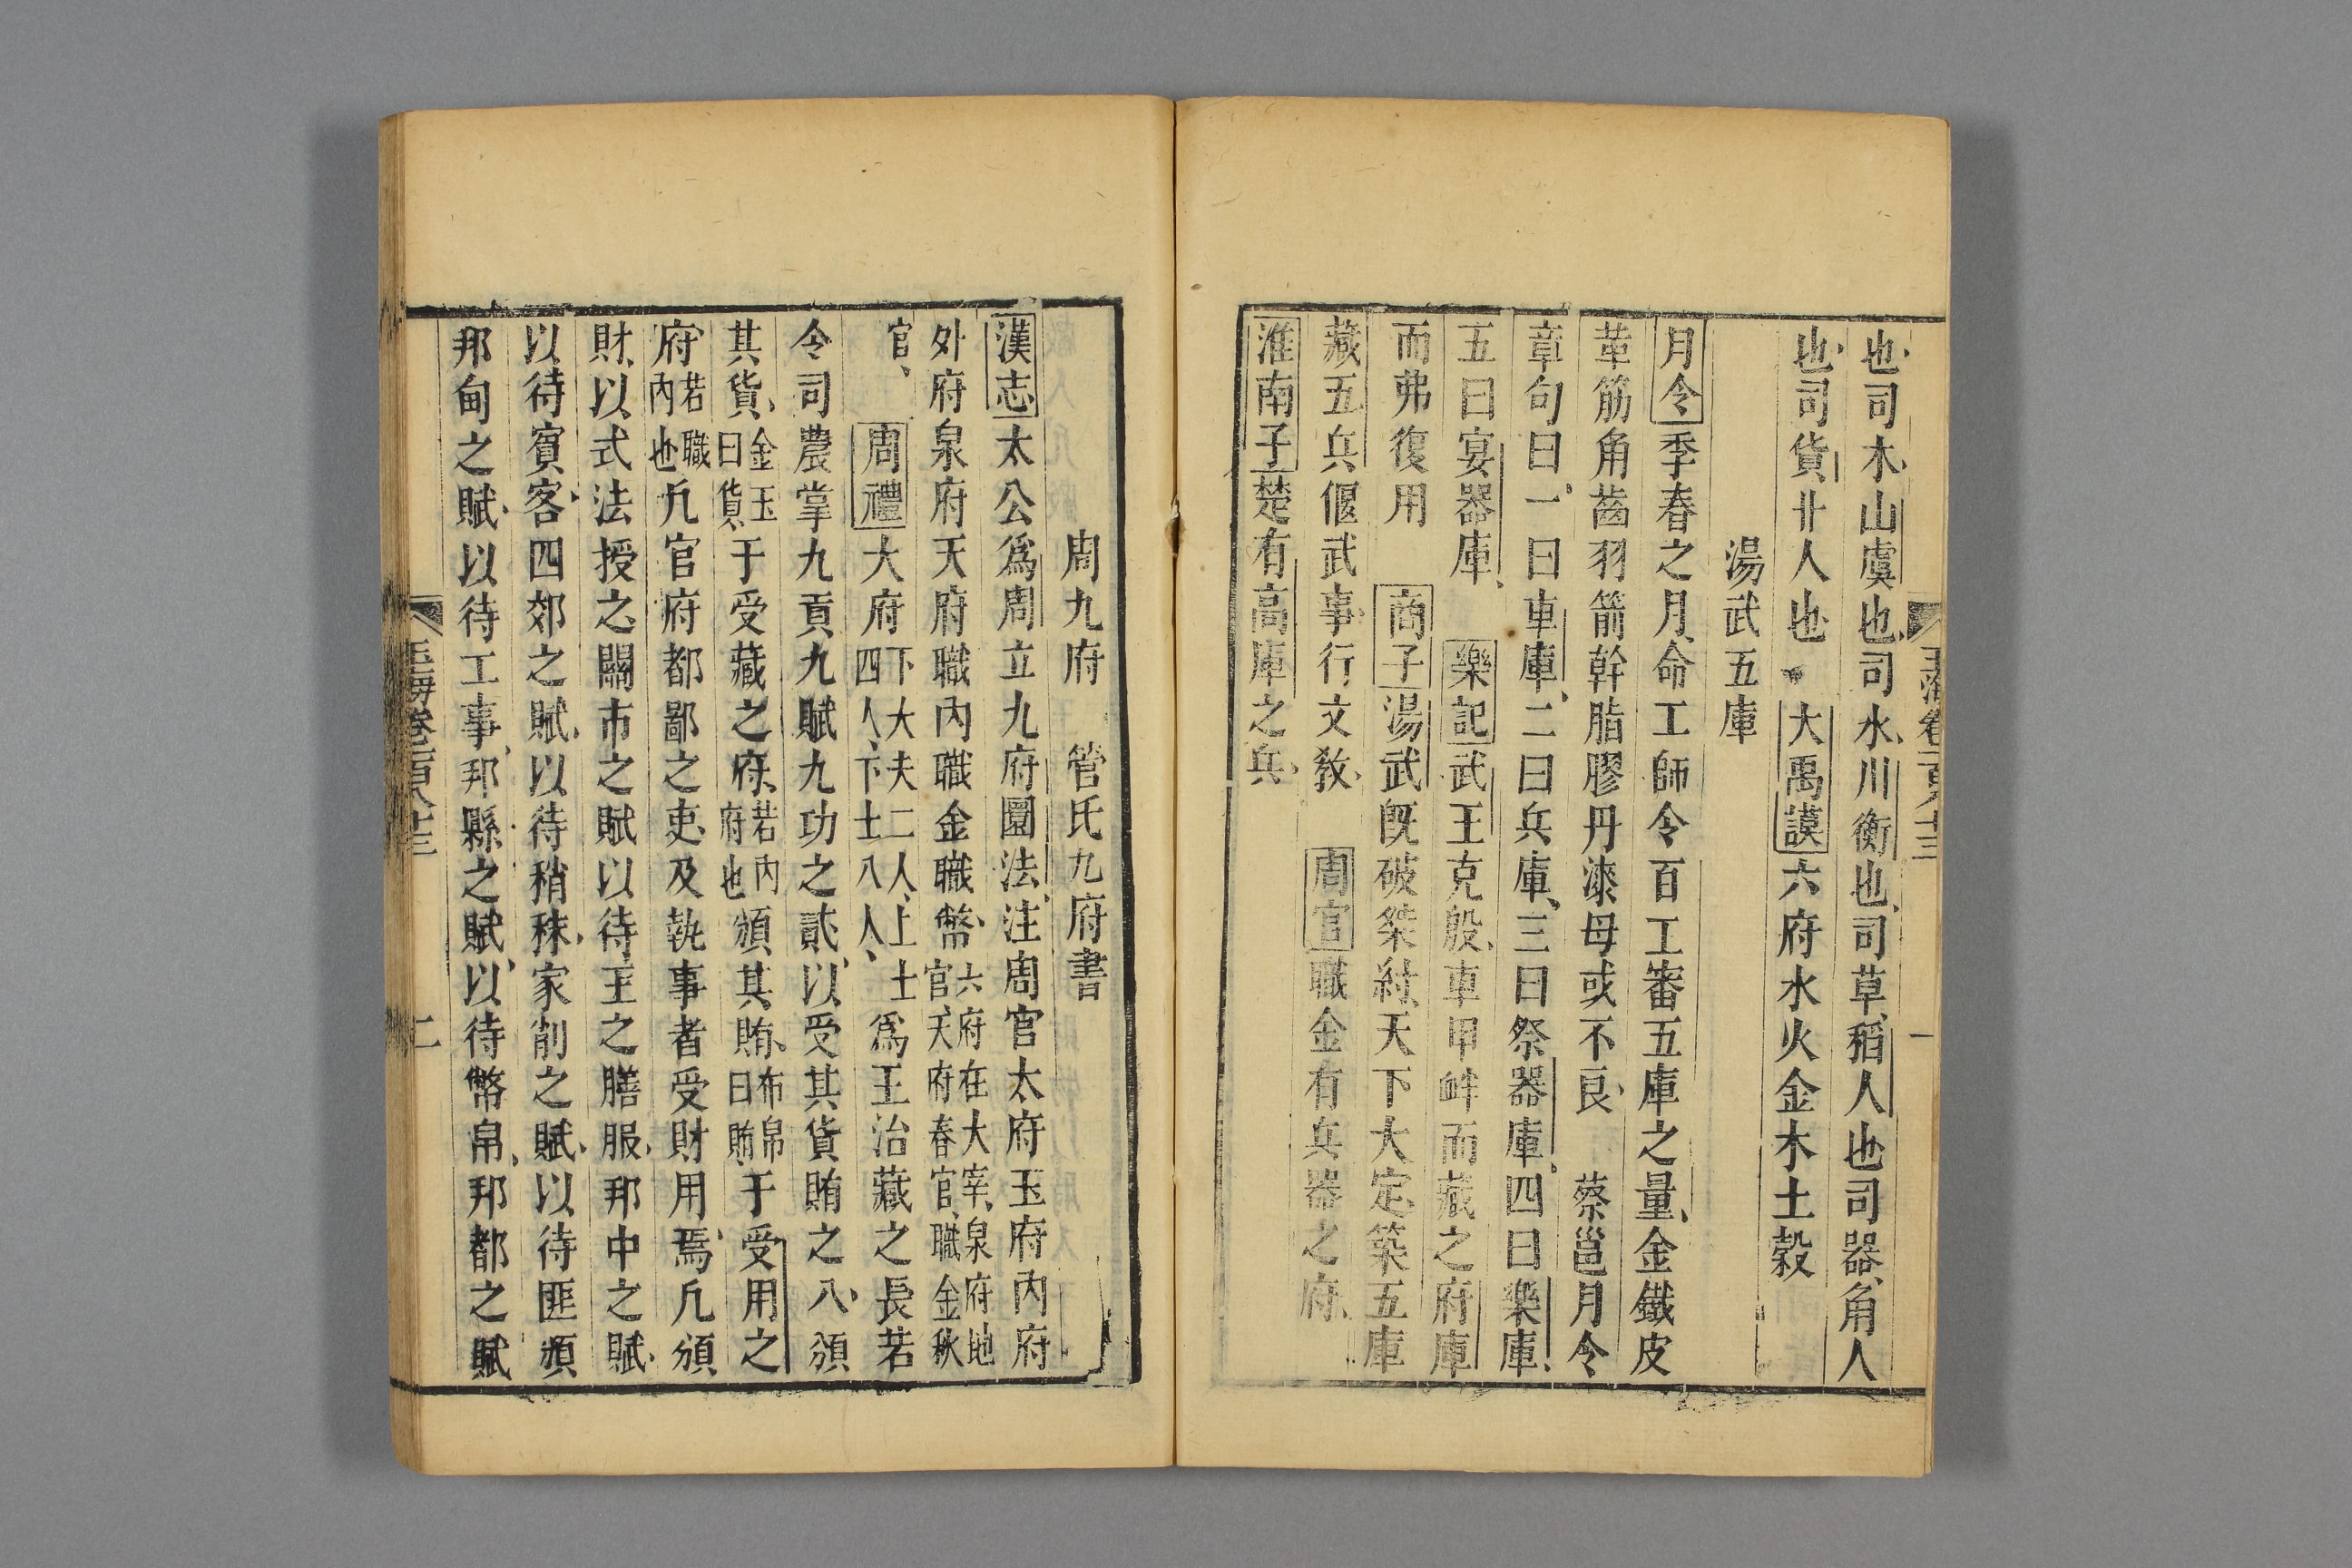 玉海卷一百八十三
一
也司木山虞也司水川衡也司草稻人也司器角人
也司貨卝人也 大禹謨六府水火金木土穀
湯武五庫
月令季春之月命工師令百工審五庫之量金鐵皮
革筋角齒羽箭幹脂膠丹漆毋或不良 蔡邕月令
章句曰一曰車庫二曰兵庫三曰祭器庫四曰樂庫
五曰宴器庫 樂記武王克殷車甲衅而藏之府庫
而弗復用 商子湯武既破桀紂天下大定築五庫
藏五兵偃武事行文教 周官職金有兵器之府
淮南子楚有高庫之兵
周九府 管氏九府書
漢志太公爲周立九府圜法注周官太府玉府內府
外府泉府天府職內職金職幣六府在大宰泉府地官天府春官職金秋
官 周禮大府下大夫二人上士四人下士八人爲王治藏之長若
今司農掌九貢九賦九功之貳以受其貨賄之入頒
其貨金玉曰貨于受藏之府若內府也頒其賄布帛曰賄于受用之
府若職內也凡官府都鄙之吏及執事者受財用焉凡頒
財以式法授之關市之賦以待王之膳服邦中之賦
以待賓客四郊之賦以待稍秣家削之賦以待匪頒
邦甸之賦以待工事邦縣之賦以待幣帛邦都之賦
玉海卷一百八十三
二